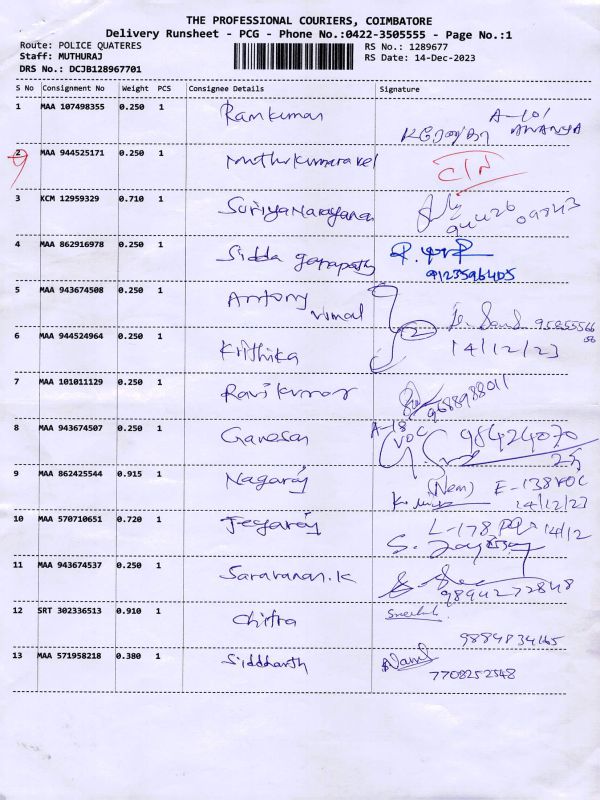 THE PROFESSIONAL COURIERS, COIMBATORE
Delivery Runsheet - PCG - Phone No.:0422-3505555 - Page No.:1
Route: POLICE QUATERES
RS No.: 1289677
Staff: MUTHURAJ
RS Date: 14-Dec-2023
DRS No.: DCJB128967701
S No Consignment No Weight PCS Consignee Details Signature
1 MAA 107498355 0.250 1 Ramkumar A-101
2 MAA 944525171 0.250 1 Muthukumaravel
9
3 KCM 12959329 0.710 1 Suriya Narayanan
4 MAA 862916978 0.250 1 Sidda ganapathy
9123596405
5 MAA 943674508 0.250 1 Antony
Vimal
6 MAA 944524964 0.250 1 Krithika 14/12/23
7 MAA 101011129 0.250 1 Ravikumar 9688988011
8 MAA 943674507 0.250 1 Ganesan A-18
VOC 98424070
25
9 MAA 862425544 0.915 1 Nagaraj E-138 VOC
14/12/23
10 MAA 570710651 0.720 1 Jegaraj L-178 14/12
11 MAA 943674537 0.250 1 Saravanan.K
9894272848
12 SRT 302336513 0.910 1 Chitra
9884834165
13 MAA 571958218 0.380 1 Siddharth
7708252548